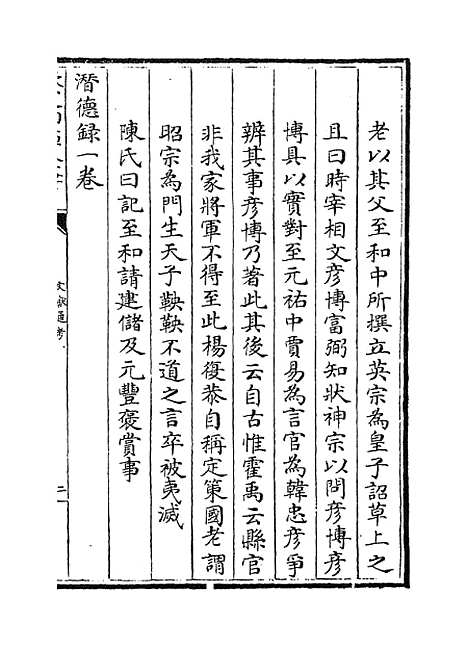 老以其父至和中所撰立英宗為皇子詔草上之
且曰時宰相文彦博富弼知狀神宗以問彦博彦
博具以實對至元祐中賈易為言官為韓忠彦爭
辨其事彦博乃著此其後云自古惟霍禹云縣官
非我家將軍不得至此楊復恭自稱定策國老謂
昭宗為門生天子鞅鞅不道之言卒被夷滅
陳氏曰記至和請建儲及元豐褒賞事
潛德録一卷
文獻通考